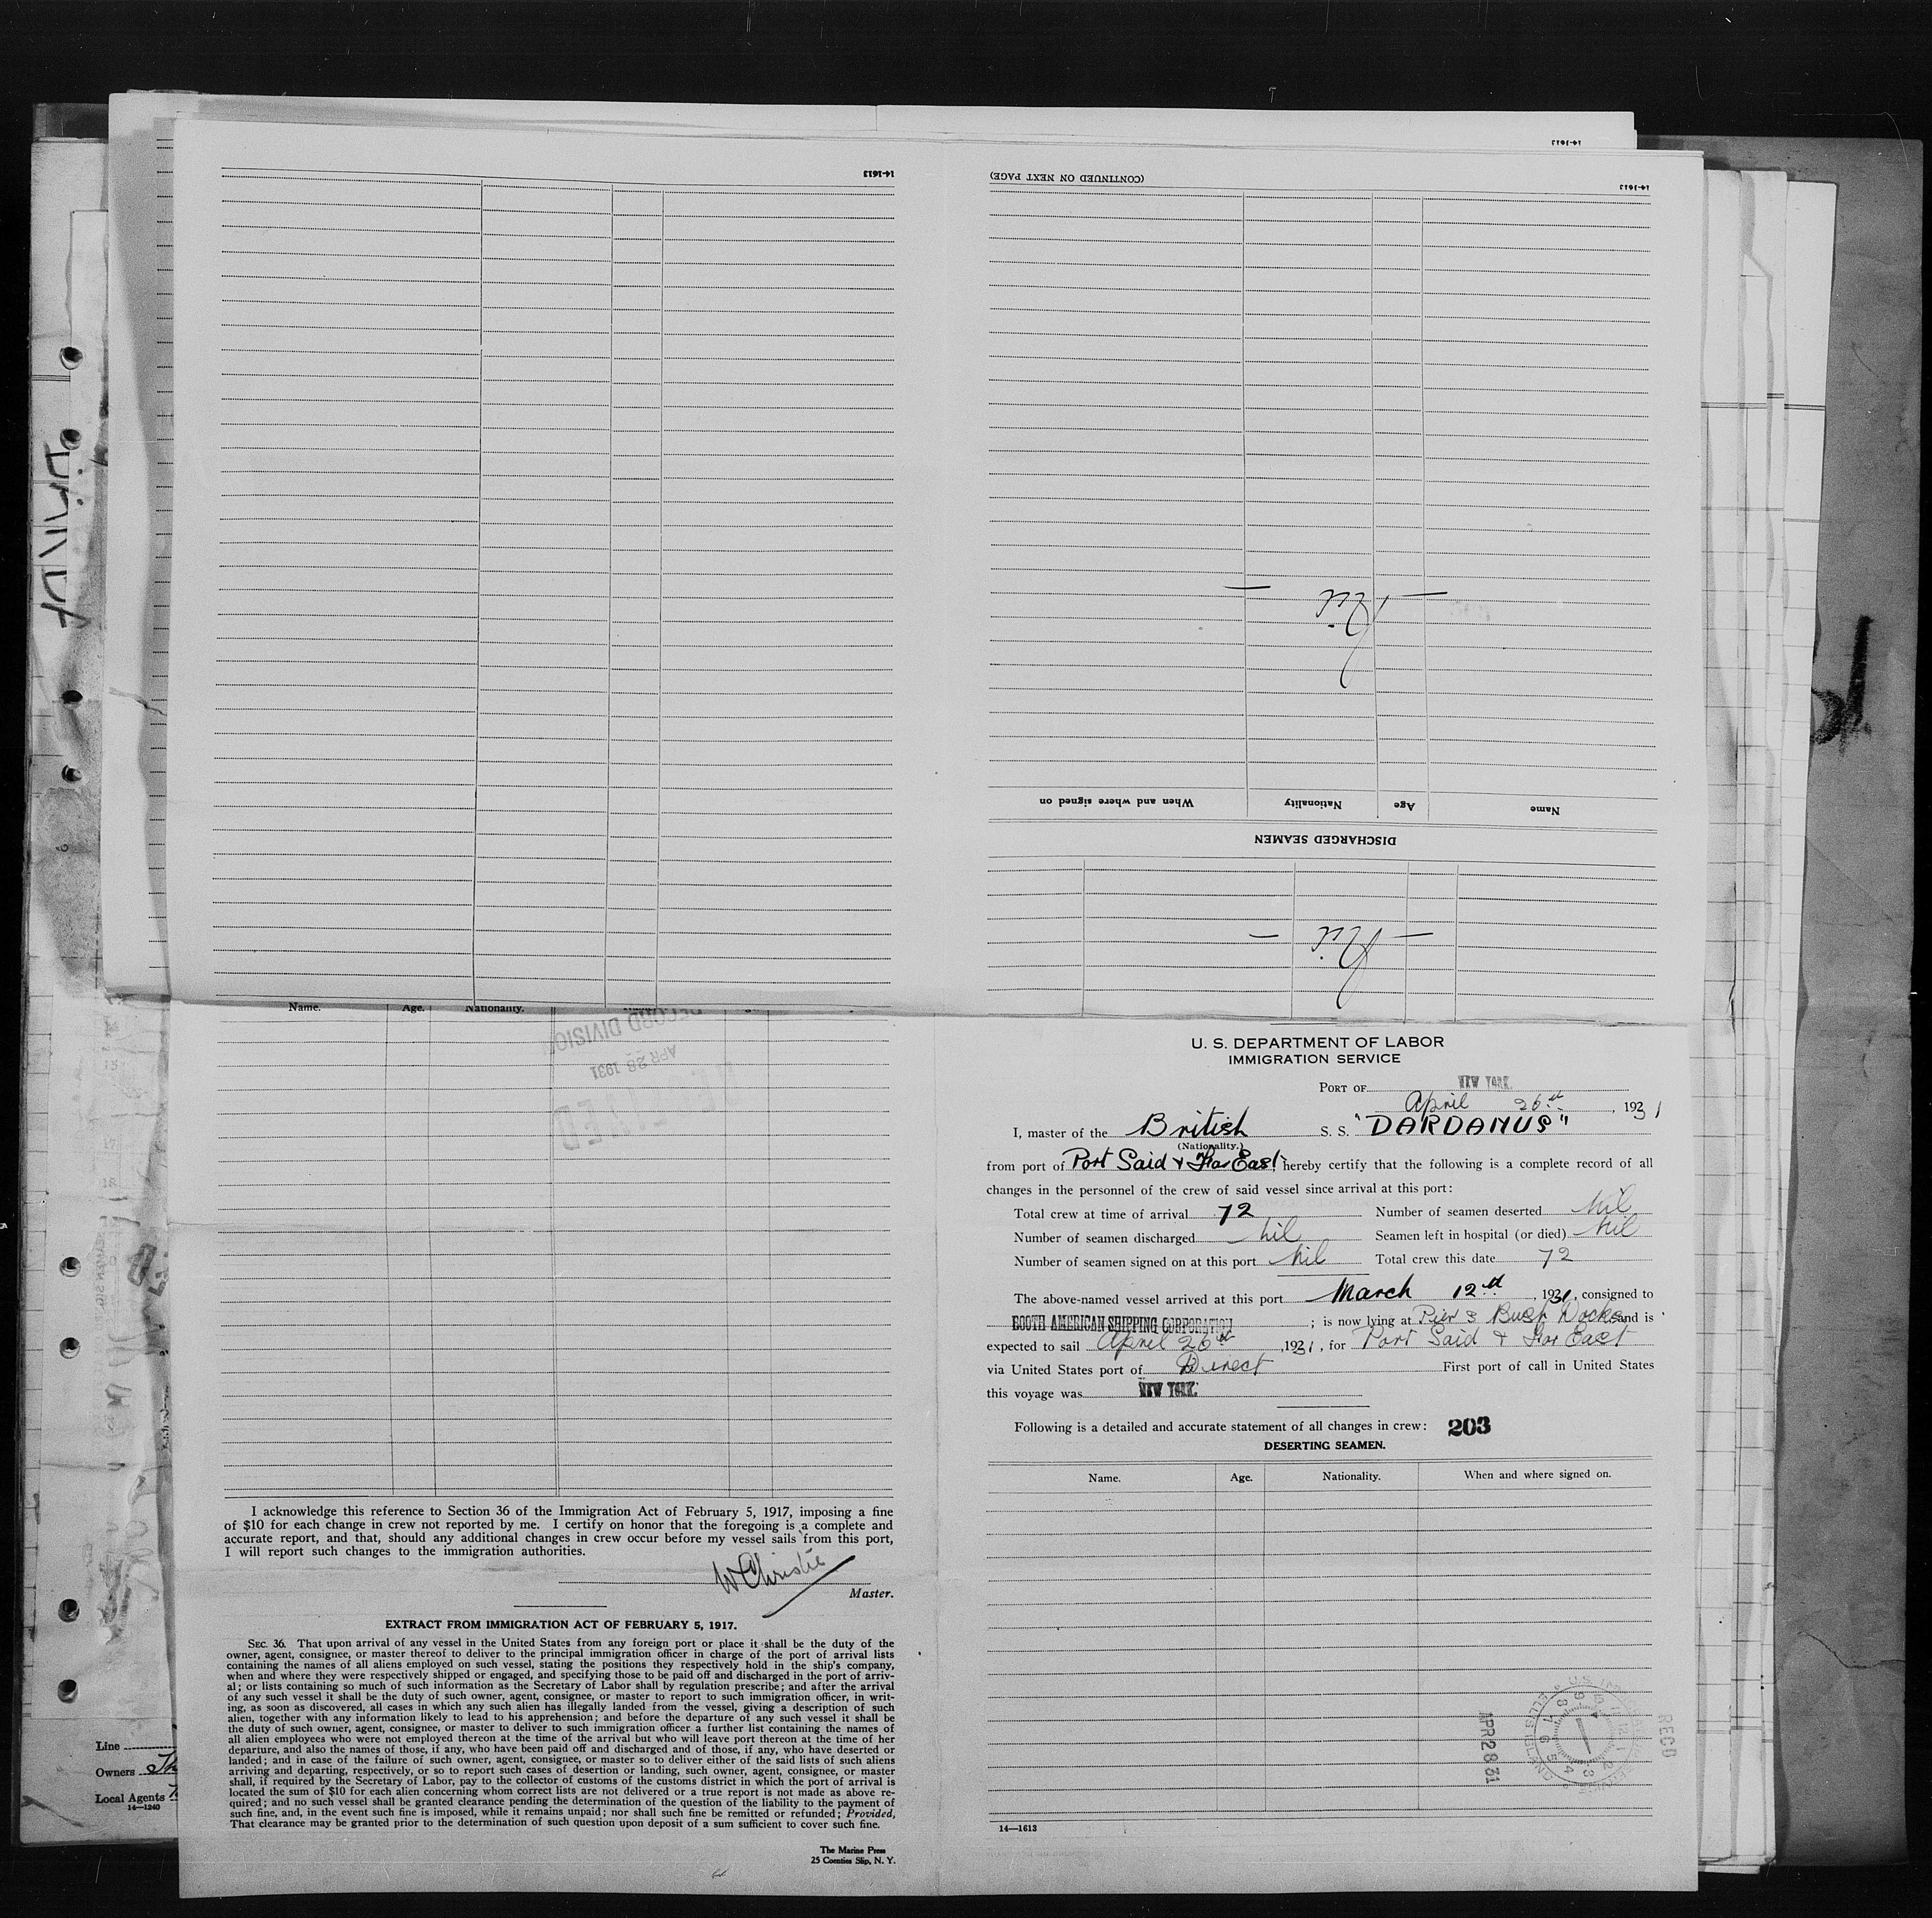 14-1613
14-1613
(CONTINUED ON NEXT PAGE)
14-1613
Nil
Name
Age
Nationality
When and where signed on
DISCHARGED SEAMEN
Nil
Name.
Age.
Nationality.
RECORD DIVISION
APR 28 1931
U. S. DEPARTMENT OF LABOR
IMMIGRATION SERVICE
PORT OF NEW YORK.
April 26th, 1931
I, master of the British S. S. "DARDANUS"
(Nationality.)
from port of Port Said & Far East hereby certify that the following is a complete record of all
changes in the personnel of the crew of said vessel since arrival at this port:
Total crew at time of arrival 72 Number of seamen deserted Nil
Number of seamen discharged Nil Seamen left in hospital (or died) Nil
Number of seamen signed on at this port Nil Total crew this date 72
The above-named vessel arrived at this port March 12th, 1931, consigned to
BOOTH AMERICAN SHIPPING CORPORATION; is now lying at Pier 3 Bush Docks and is
expected to sail April 26th, 1931, for Port Said & Far East
via United States port of Direct First port of call in United States
this voyage was NEW YORK.
Following is a detailed and accurate statement of all changes in crew: 203
DESERTING SEAMEN.
Name. Age. Nationality. When and where signed on.
APR 28 31
RECD
14—1613
I acknowledge this reference to Section 36 of the Immigration Act of February 5, 1917, imposing a fine
of $10 for each change in crew not reported by me. I certify on honor that the foregoing is a complete and
accurate report, and that, should any additional changes in crew occur before my vessel sails from this port,
I will report such changes to the immigration authorities.
W Christie
Master.
EXTRACT FROM IMMIGRATION ACT OF FEBRUARY 5, 1917.
SEC. 36. That upon arrival of any vessel in the United States from any foreign port or place it shall be the duty of the
owner, agent, consignee, or master thereof to deliver to the principal immigration officer in charge of the port of arrival lists
containing the names of all aliens employed on such vessel, stating the positions they respectively hold in the ship's company,
when and where they were respectively shipped or engaged, and specifying those to be paid off and discharged in the port of arriv-
al; or lists containing so much of such information as the Secretary of Labor shall by regulation prescribe; and after the arrival
of any such vessel it shall be the duty of such owner, agent, consignee, or master to report to such immigration officer, in writ-
ing, as soon as discovered, all cases in which any such alien has illegally landed from the vessel, giving a description of such
alien, together with any information likely to lead to his apprehension; and before the departure of any such vessel it shall be
the duty of such owner, agent, consignee, or master to deliver to such immigration officer a further list containing the names of
all alien employees who were not employed thereon at the time of the arrival but who will leave port thereon at the time of her
departure, and also the names of those, if any, who have been paid off and discharged and of those, if any, who have deserted or
landed; and in case of the failure of such owner, agent, consignee, or master so to deliver either of the said lists of such aliens
arriving and departing, respectively, or so to report such cases of desertion or landing, such owner, agent, consignee, or master
shall, if required by the Secretary of Labor, pay to the collector of customs of the customs district in which the port of arrival is
located the sum of $10 for each alien concerning whom correct lists are not delivered or a true report is not made as above re-
quired; and no such vessel shall be granted clearance pending the determination of the question of the liability to the payment of
such fine, and, in the event such fine is imposed, while it remains unpaid; nor shall such fine be remitted or refunded; Provided,
That clearance may be granted prior to the determination of such question upon deposit of a sum sufficient to cover such fine.
The Marine Press
25 Coenties Slip, N. Y.
Line
Owners
Local Agents
14—1240